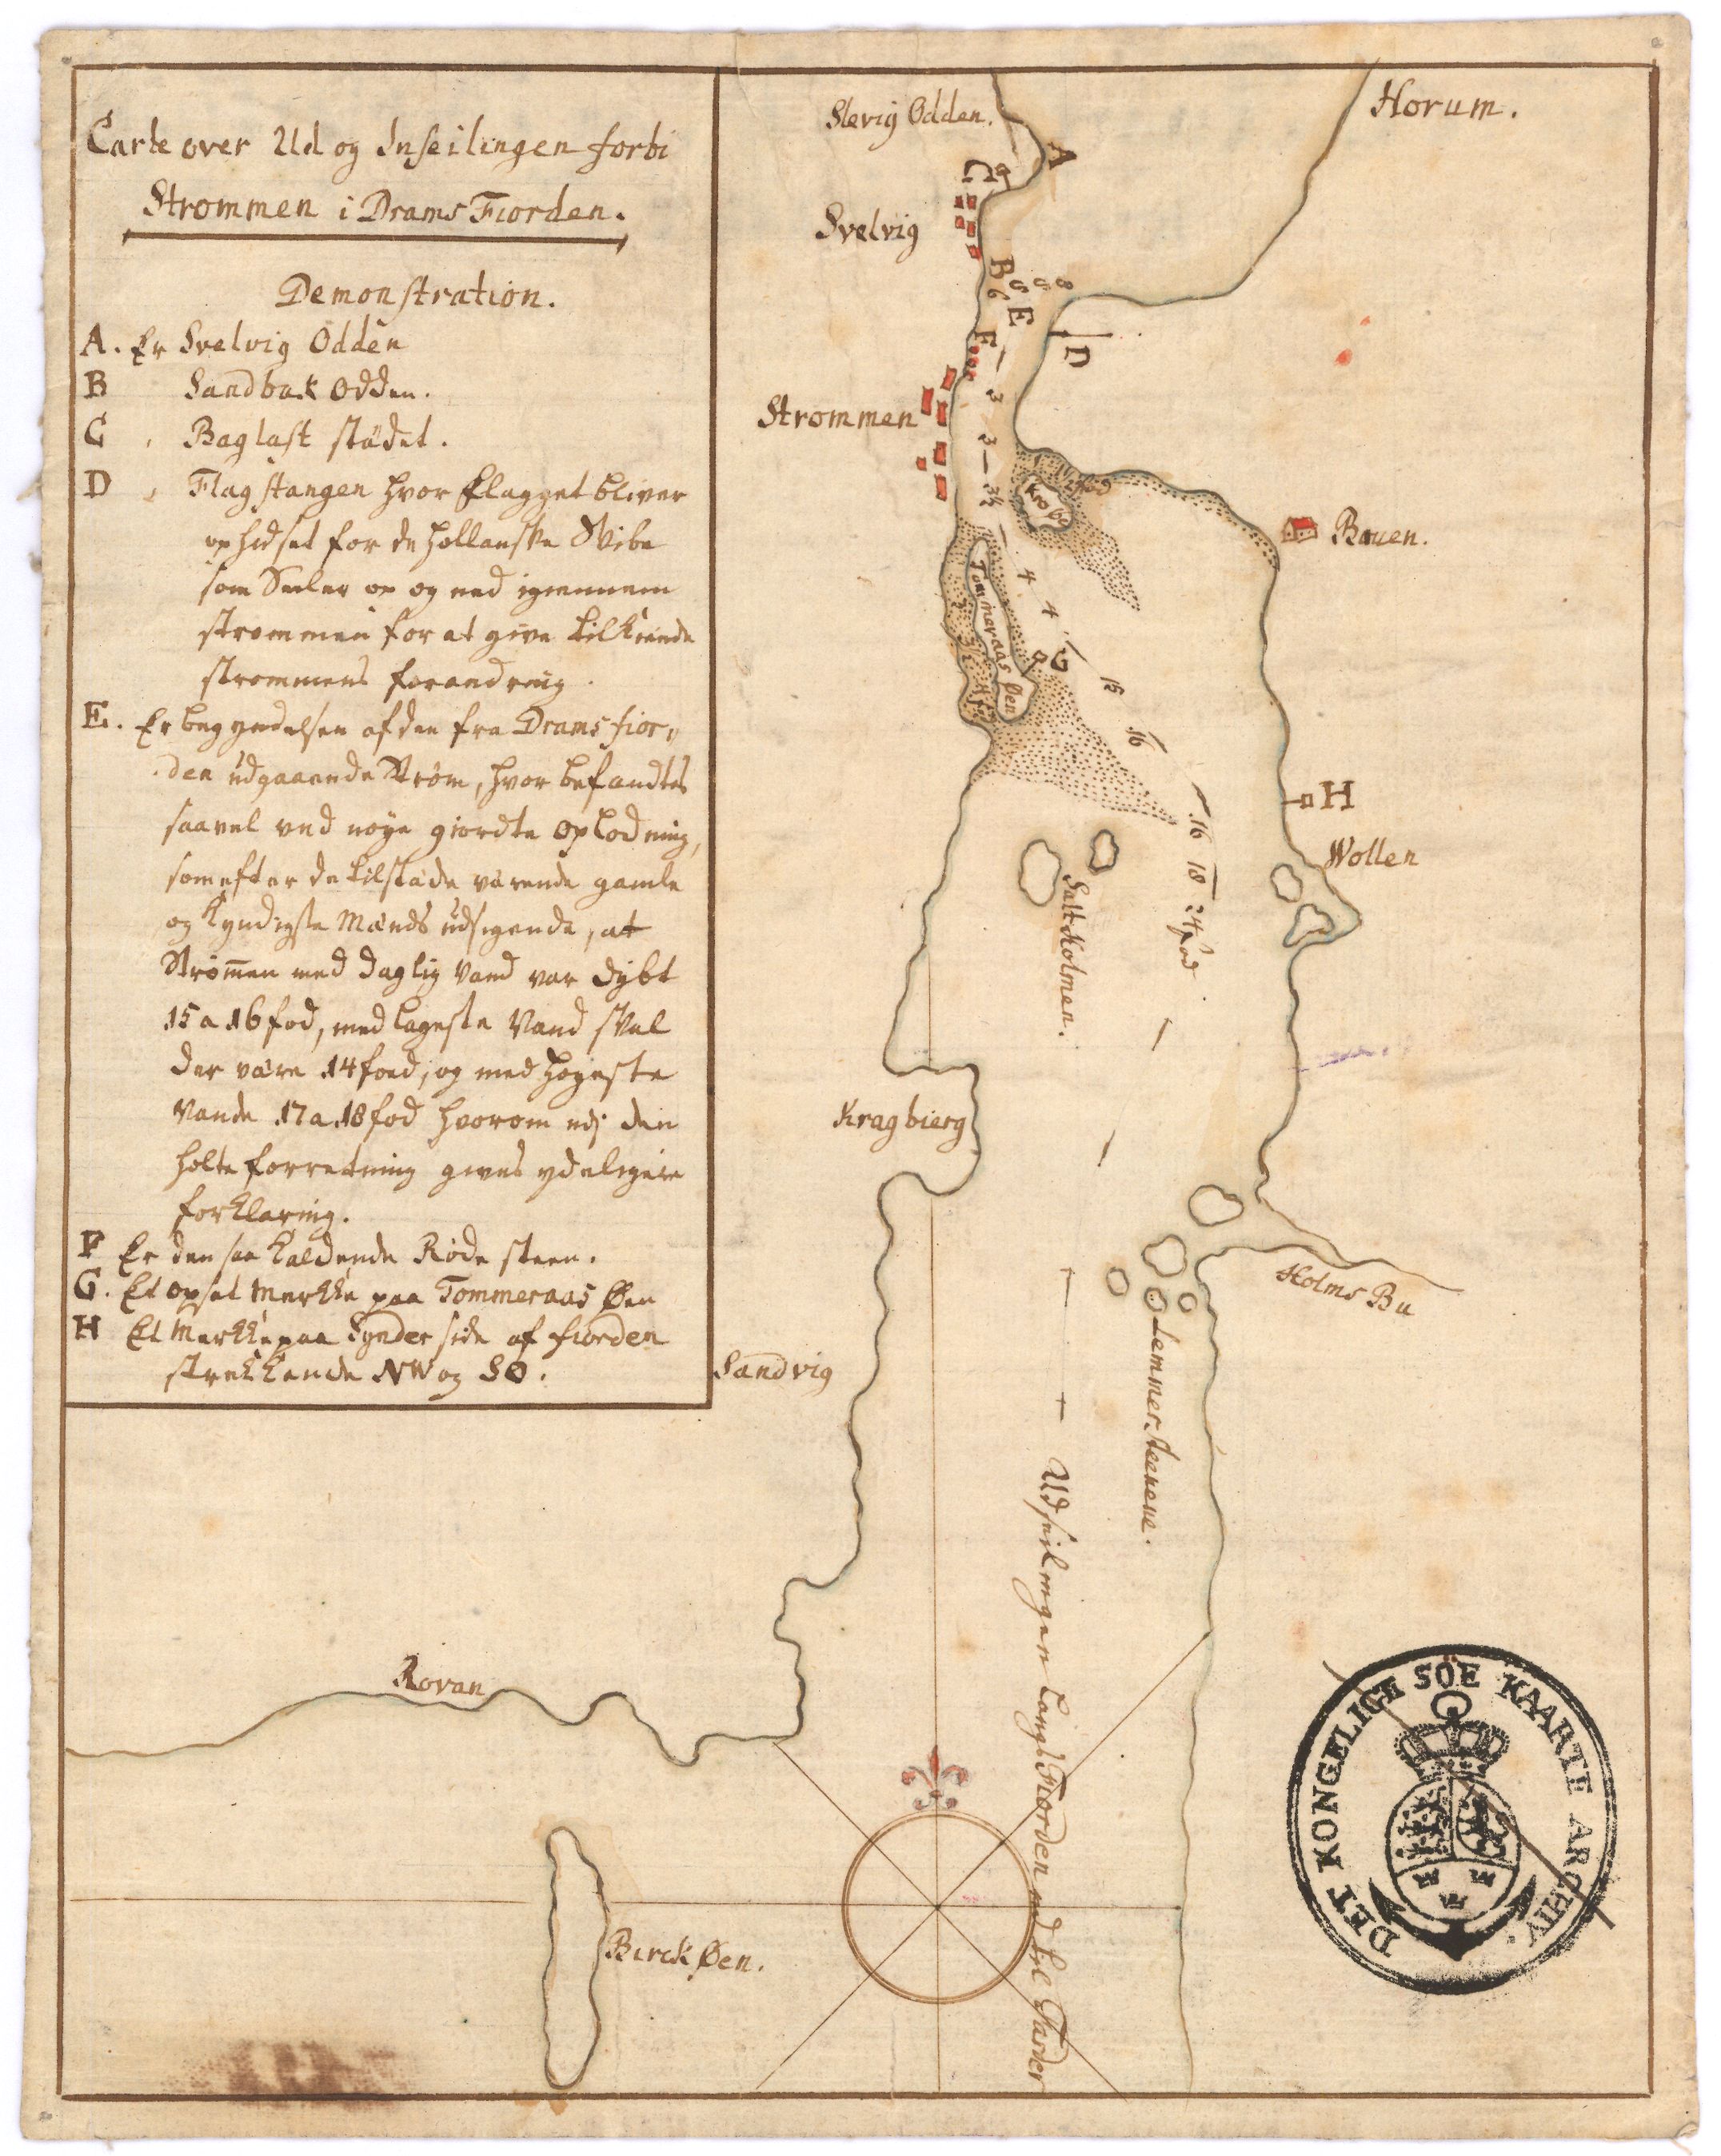 Carte over Ud og Inseilingen forbi
Strommen i Drams Fiorden.
Demonstration.
A. Er Svelvig Odden
B Sandbak Odden.
C Baglast städet.
D Flagstangen hvor flagget bliver
ophidset for de hollanske Skibe
som Seiler op og ned igiennem
strømmen for at give tilkiende
strommens forandring.
E. Er begyndelsen af den fra Drams fior,,
den udgaaende Strøm, hvor befandtes
saavel ved nøye giordte oplodning,
som efter de tilstæde værende gamle
og kyndigste Mænds udsigende, at
Strøm̄en med daglig Vand var dybt
15 a 16 fod, med lageste Vand skal
der være 14 foed, og med høgeste
Vande 17 a 18 fod hvorom udj den
holte forretning gives ydeligere
forklaring.
F Er den saa kaldende Røde steen.
G. Et opsat Merke paa Tommeraas Øen
H Et Merke paa Synder side af fiorden
strekkende NW og SO.
Slevig Odden.
Horum.
A
C
Svelvig
B
6
8
E
F
D
3
Strommen
3
3½
Krobe
fod
Bauen.
Tommeraas Øen
4
4
G
15
16
H
16
18
24 fod
Wollen
Salt Holmen.
Kragbierg
Holms Bu
Lemmer steenene.
Sandvig
Udseilingen Langs Fiorden ned til Farder
Rovan
Birck Øen.
DET KONGELIGE SÖE KAARTE ARCHIV.